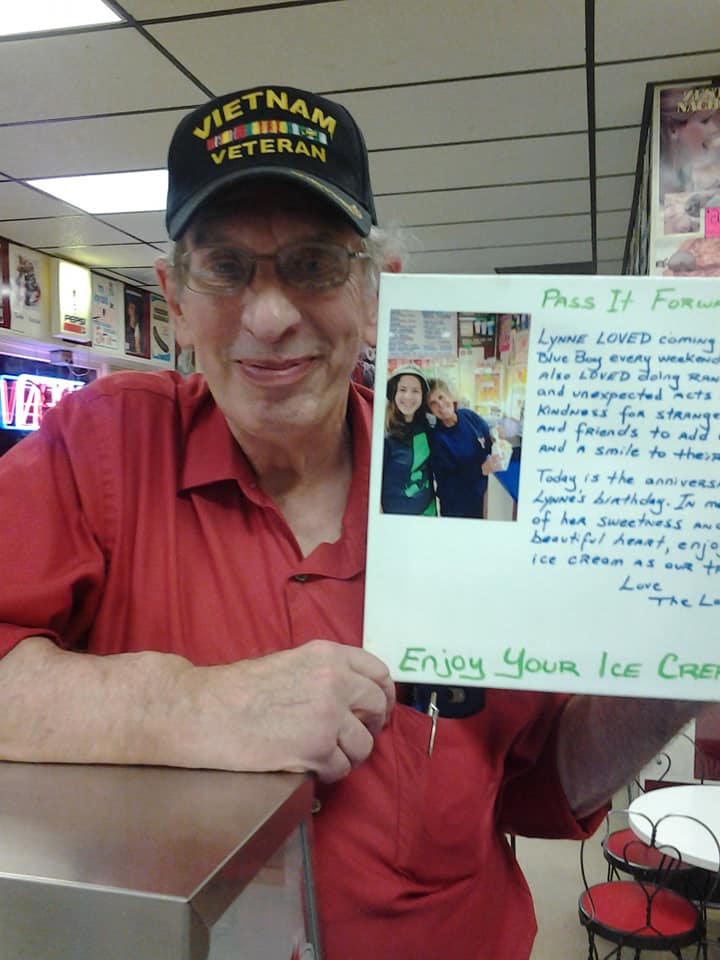 VIETNAM
VETERAN
PEPSI
NACH
PASS IT FORW
LYNNE LOVED coming
Blue Boy every weekend
Also LOVED doing RAN
and unexpected Acts
Kindness for strange
And friends to add
And a smile to their
Today is the annivers
Lynne's birthday. In m
of her sweetness and
beautiful heart, enjo
ice cream as our tr
Love
The Lo
Enjoy Your Ice Cre